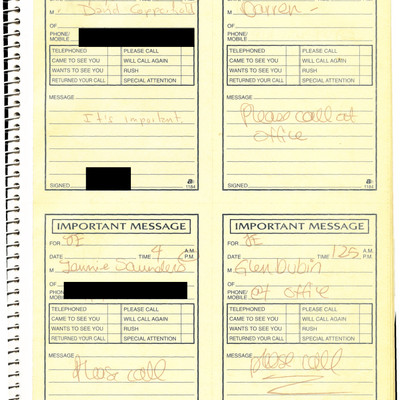 M David Copperfield
OF
PHONE/
MOBILE
TELEPHONED PLEASE CALL
CAME TO SEE YOU WILL CALL AGAIN
WANTS TO SEE YOU RUSH
RETURNED YOUR CALL SPECIAL ATTENTION
MESSAGE
It's important.
SIGNED
1184
M Darren -
OF
PHONE/
MOBILE
TELEPHONED PLEASE CALL
CAME TO SEE YOU WILL CALL AGAIN
WANTS TO SEE YOU RUSH
RETURNED YOUR CALL SPECIAL ATTENTION
MESSAGE
Please call at
office
SIGNED
1184
IMPORTANT MESSAGE
FOR JE
A.M.
DATE TIME 4 P.M.
M Jannie Saunders
OF
PHONE/
MOBILE
TELEPHONED PLEASE CALL
CAME TO SEE YOU WILL CALL AGAIN
WANTS TO SEE YOU RUSH
RETURNED YOUR CALL SPECIAL ATTENTION
MESSAGE
Please call
IMPORTANT MESSAGE
FOR JE
A.M.
DATE TIME 125 P.M.
M Glen Dubin
OF
PHONE/ at office
MOBILE
TELEPHONED PLEASE CALL
CAME TO SEE YOU WILL CALL AGAIN
WANTS TO SEE YOU RUSH
RETURNED YOUR CALL SPECIAL ATTENTION
MESSAGE
please call